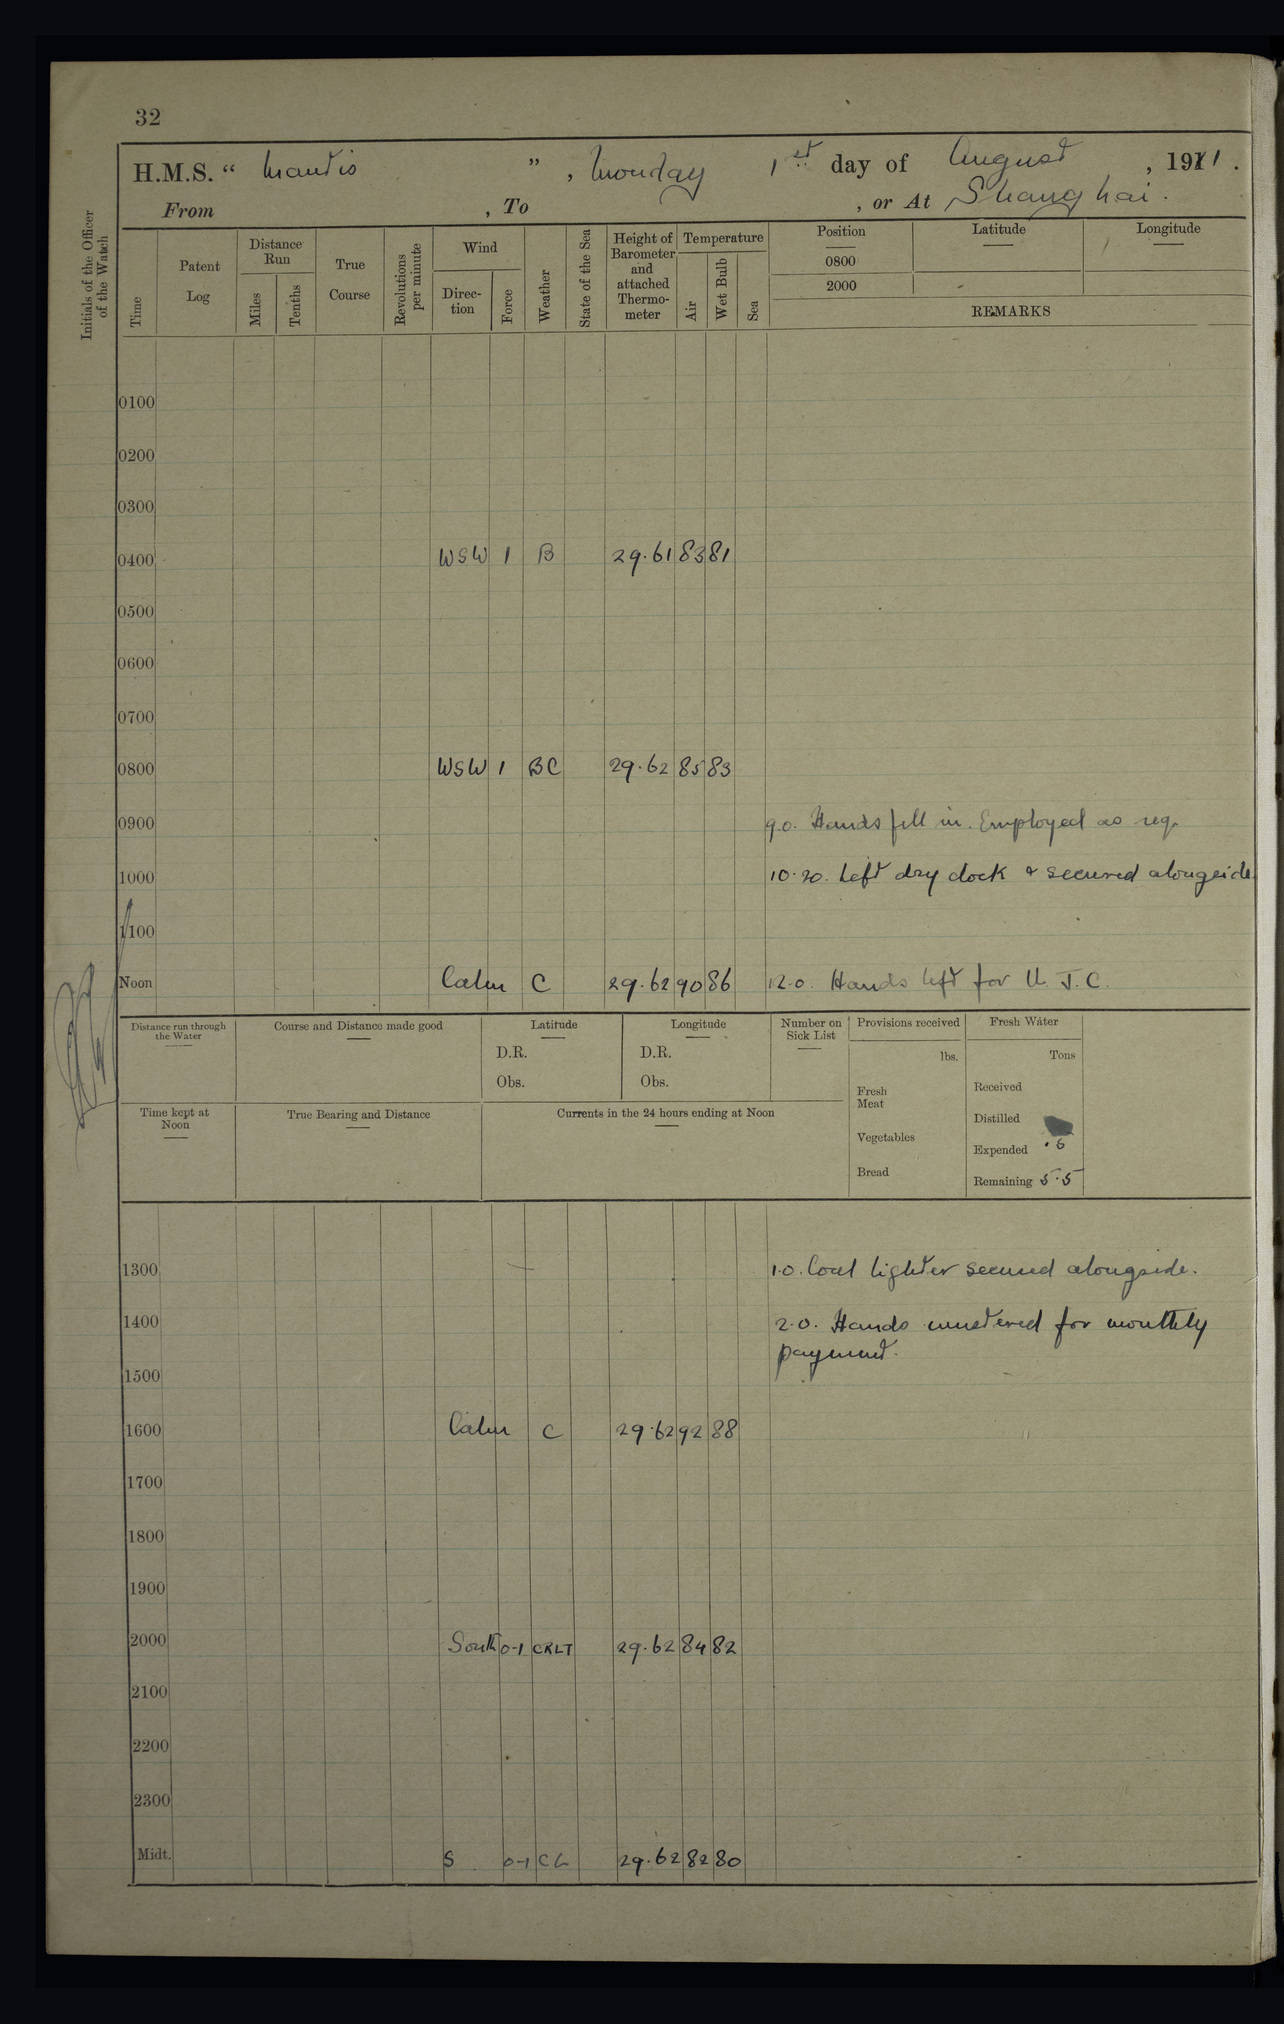 32
H.M.S. “ Mantis ” , Monday 1st day of August , 1921 .
From , To , or At Shanghai .
Initials of the Officer of the Watch
Time
Patent Log
Distance Run
Miles
Tenths
True Course
Revolutions per minute
Wind
Direc-tion
Force
Weather
State of the Sea
Height of Barometer and attached Thermo-meter
Temperature
Air
Wet Bulb
Sea
Position
0800
2000
Latitude
Longitude
REMARKS
0100
0200
0300
0400 WSW 1 B 29.61 83 81
0500
0600
0700
0800 WSW 1 BC 29.62 85 83
0900 9.0. Hands fell in. Employed as req.
1000 10.20. Left dry dock & secured alongside.
1100
Noon Calm C 29.62 90 86 12.0. Hands left for U. J. C.
Distance run through the Water
Course and Distance made good
Latitude
D.R.
Obs.
Longitude
D.R.
Obs.
Number on Sick List
Provisions received
lbs.
Fresh Meat
Vegetables
Bread
Fresh Water
Tons
Received
Distilled
Expended .5
Remaining 5.5
Time kept at Noon
True Bearing and Distance
Currents in the 24 hours ending at Noon
1300 1.0. Coal lighter secured alongside.
1400 2.0. Hands mustered for monthly
payment.
1500
1600 Calm C 29.62 92 88
1700
1800
1900
2000 South 0-1 CRLT 29.62 84 82
2100
2200
2300
Midt. S 0-1 CL 29.62 82 80